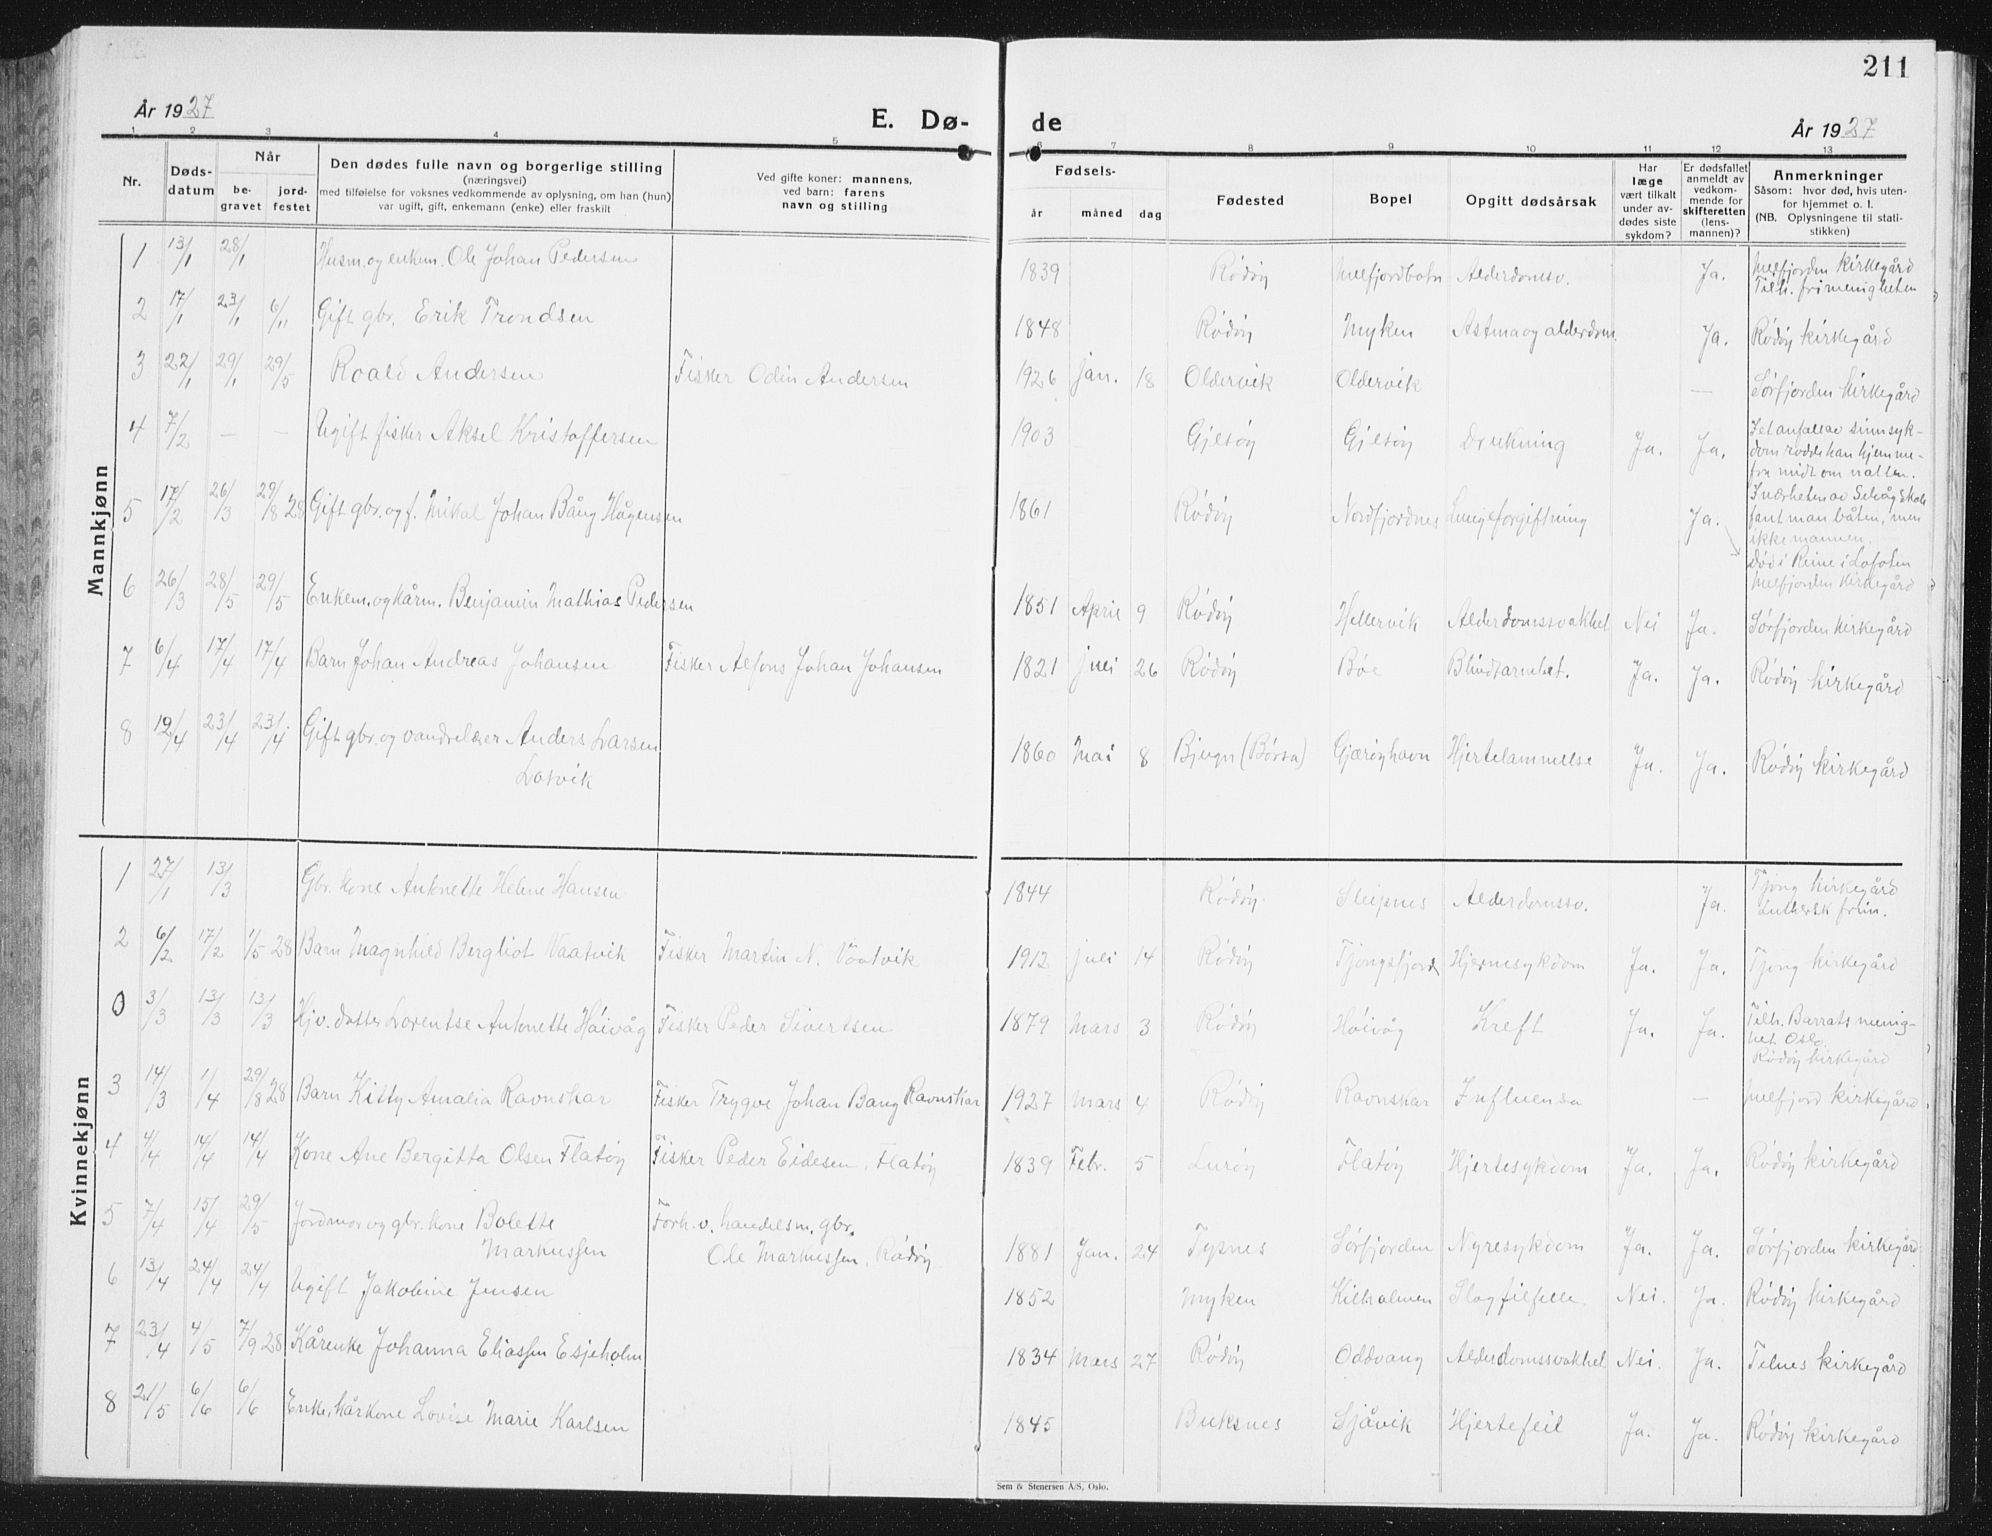 211
År 1927
E. Dø-
de
År 1927
1 2 3 4 5 6 7 8 9 10 11 12 13
Nr.
Døds-
datum
Når
be-
gravet
jord-
festet
Den dødes fulle navn og borgerlige stilling
(næringsvei)
med tilføielse for voksnes vedkommende av oplysning, om han (hun)
var ugift, gift, enkemann (enke) eller fraskilt
Ved gifte koner: mannens,
ved barn: farens
navn og stilling
Fødsels-
år måned dag
Fødested
Bopel
Opgitt dødsårsak
Har
læge
vært tilkalt
under av-
dødes siste
sykdom?
Er dødsfallet
anmeldt av
vedkom-
mende for
skifteretten
(lens-
mannen)?
Anmerkninger
Såsom: hvor død, hvis uten-
for hjemmet o. l.
(NB. Oplysningene til stati-
stikken)
Mannkjønn
1 13/1 28/1 Husm. og enkem. Ole Johan Pedersen 1839 Rødøy Melfjordbotn Alderdomsv. Ja. Melfjorden kirkegård
Tilh. frimenigheten
2 17/1 23/1 6/11 Gift gbr. Erik Trondsen 1848 Rødøy Myken Astma og alderdom. Ja. Rødøy kirkegård
3 22/1 29/1 29/5 Roald Andersen Fisker Odin Andersen 1926 jan. 18 Oldervik Oldervik — Sørfjorden kirkegård
4 7/2 — — Ugift fisker Aksel Kristoffersen 1903 Gjelsøy Gjelsøy Drukning Ja. Ja. I et anfall av sinnsyk-
dom rodde han hjemme-
fra midt om natten.
I nærheten av Selvåg skole
fant man båten, men
ikke mannen.
5 17/2 26/3 29/8 28 Gift gbr. og f. Mikal Johan Bång Hågensen 1861 Rødøy Nordfjordnes Lungeforgiftning Ja. Død i Reine i Lofoten
Melfjorden kirkegård
6 26/3 28/5 29/5 Enkem. og kårm. Benjamin Mathias Pedersen 1851 April 9 Rødøy Hellervik Alderdomssvakhet Nei Ja. Sørfjorden kirkegård
7 6/4 17/4 17/4 Barn Johan Andreas Johansen Fisker Alfons Johan Johansen 1821 juli 26 Rødøy Bøe Blindtarmbet. Ja. Ja. Rødøy kirkegård
8 19/4 23/4 23/4 Gift gbr. og vandrelærer Anders Larsen
Lotvik 1860 Mai 8 Bjugn (Børsa) Gjærøyhavn Hjertelammelse Ja. Ja. Rødøy kirkegård
Kvinnekjønn
1 27/1 13/3 Gbr. kone Antonette Helene Hansen 1844 Rødøy Sleipnes Alderdomssv. Ja. Tjong kirkegård
Luthersk frim.
2 6/2 17/2 1/5 28 Barn Magnhild Bergliot Vaatvik Fisker Martin N. Våtvik 1912 juli 14 Rødøy Tjongsfjord Hjernesykdom Ja. Ja. Tjong kirkegård
0 3/3 13/3 13/3 Hjv. datter Lorentse Antonette Høivåg Fisker Peder Sivertsen 1879 Mars 3 Rødøy Høivåg Kreft Ja. Ja. Tilh. Barrats menig-
het Oslo.
Rødøy kirkegård
3 14/3 1/4 29/8 28 Barn Kitty Amalia Ravnskar Fisker Trygve Johan Bang Ravnskar 1927 Mars 4 Rødøy Ravnskar Influensa — Melfjord kirkegård
4 4/4 14/4 14/4 Kone Ane Bergitta Olsen Flatøy Fisker Peder Eidesen, Flatøy 1839 Febr. 5 Lurøy Flatøy Hjertesykdom Ja. Ja. Rødøy kirkegård
5 7/4 15/4 29/5 Jordmor og gbr. kone Bolette
Markussen Forh.v. handelsm. gbr.
Ole Markussen, Rødøy 1881 Jan. 24 Tysnes Sørfjorden Nyresykdom Ja. Ja. Sørfjorden kirkegård
6 13/4 24/4 24/4 Ugift Jakobine Jensen 1852 Myken Kilholmen Slagtilfelle. Nei. Ja. Rødøy kirkegård
7 23/4 4/5 7/9 28 Kårenke Johanna Eliassen Esjeholm 1834 Mars 27 Rødøy Oddvang Alderdomssvakhet Nei. Ja. Telnes kirkegård
8 21/5 6/6 6/6 Enke, kårkone Lovise Marie Karlsen 1845 Buksnes Sjåvik Hjertefeil Ja. Ja. Rødøy kirkegård
Sem & Stenersen A/S, Oslo.